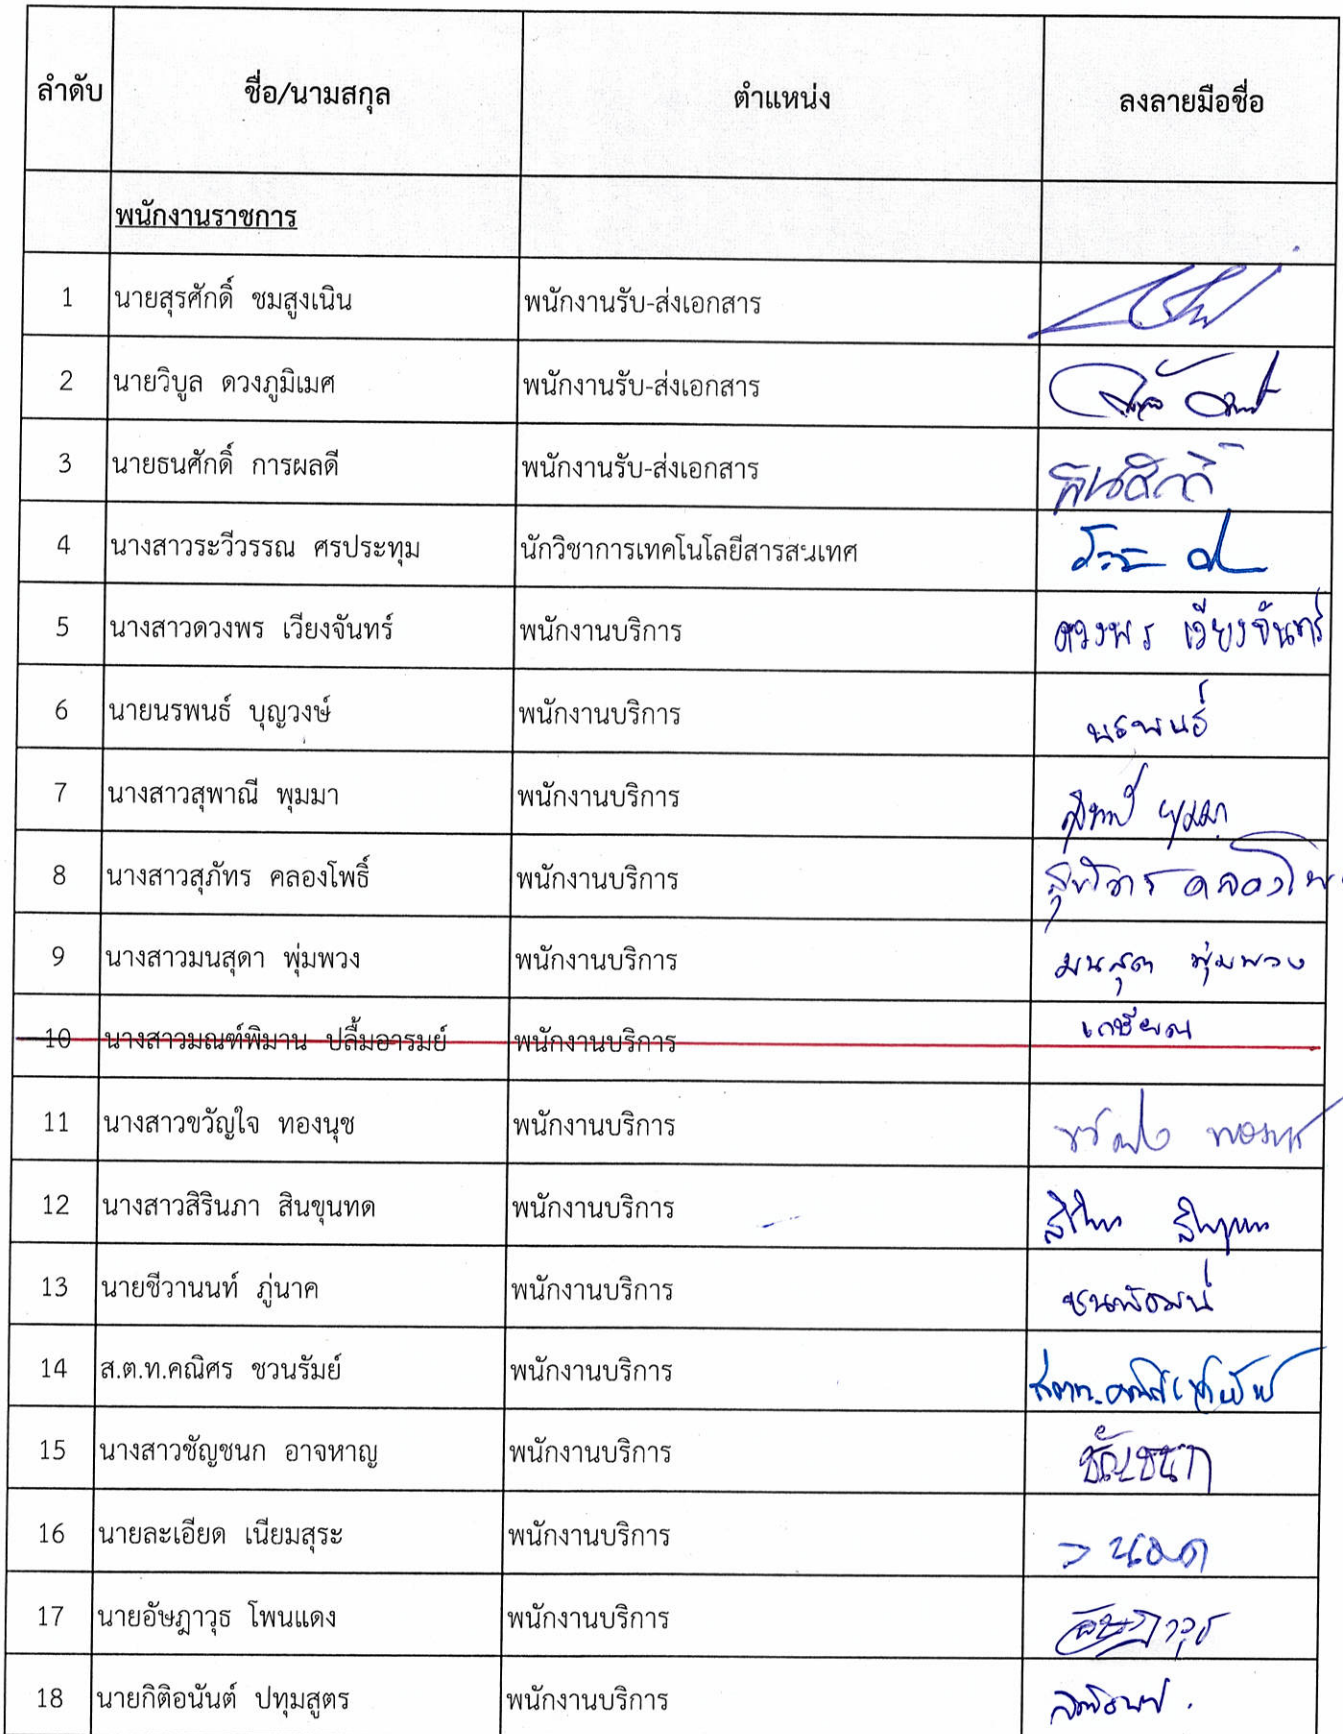 ลำดับ ชื่อ/นามสกุล ตำแหน่ง ลงลายมือชื่อ
พนักงานราชการ
1 นายสุรศักดิ์ ชมสูงเนิน พนักงานรับ-ส่งเอกสาร
2 นายวิบูล ดวงภูมิเมศ พนักงานรับ-ส่งเอกสาร
3 นายธนศักดิ์ การผลดี พนักงานรับ-ส่งเอกสาร ธนศักดิ์
4 นางสาวระวีวรรณ ศรประทุม นักวิชาการเทคโนโลยีสารสนเทศ
5 นางสาวดวงพร เวียงจันทร์ พนักงานบริการ ดวงพร เวียงจันทร์
6 นายนรพนธ์ บุญวงษ์ พนักงานบริการ นรพนธ์
7 นางสาวสุพาณี พุมมา พนักงานบริการ สุพาณี พุมมา
8 นางสาวสุภัทร คลองโพธิ์ พนักงานบริการ
9 นางสาวมนสุดา พุ่มพวง พนักงานบริการ มนสุดา พุ่มพวง
10 นางสาวมณฑ์พิมาน ปลื้มอารมย์ พนักงานบริการ เกษียณ
11 นางสาวขวัญใจ ทองนุช พนักงานบริการ
12 นางสาวสิรินภา สินขุนทด พนักงานบริการ
13 นายชีวานนท์ ภู่นาค พนักงานบริการ
14 ส.ต.ท.คณิศร ชวนรัมย์ พนักงานบริการ
15 นางสาวชัญชนก อาจหาญ พนักงานบริการ ชัญชนก
16 นายละเอียด เนียมสุระ พนักงานบริการ
17 นายอัษฎาวุธ โพนแดง พนักงานบริการ อัษฎาวุธ
18 นายกิติอนันต์ ปทุมสูตร พนักงานบริการ